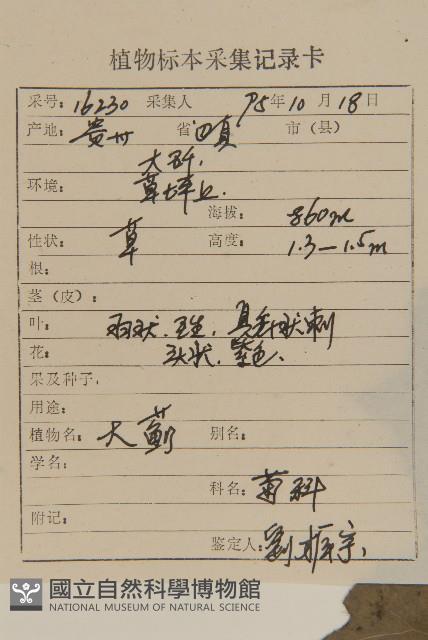 植物标本采集记录卡
采号：16230 采集人 75年10月18日
产地：贵州 省 市（县）
大
环境：草坪上.
海拔：860m
性状：草 高度：1.3—1.5m
根：
茎（皮）：
叶： 羽状.互生，具毛状刺
花： 头状.紫色、
果及种子：
用途：
植物名：大蓟 别名：
学名：
科名：菊科
附记：
鉴定人：劉振宇
國立自然科學博物館
NATIONAL MUSEUM OF NATURAL SCIENCE